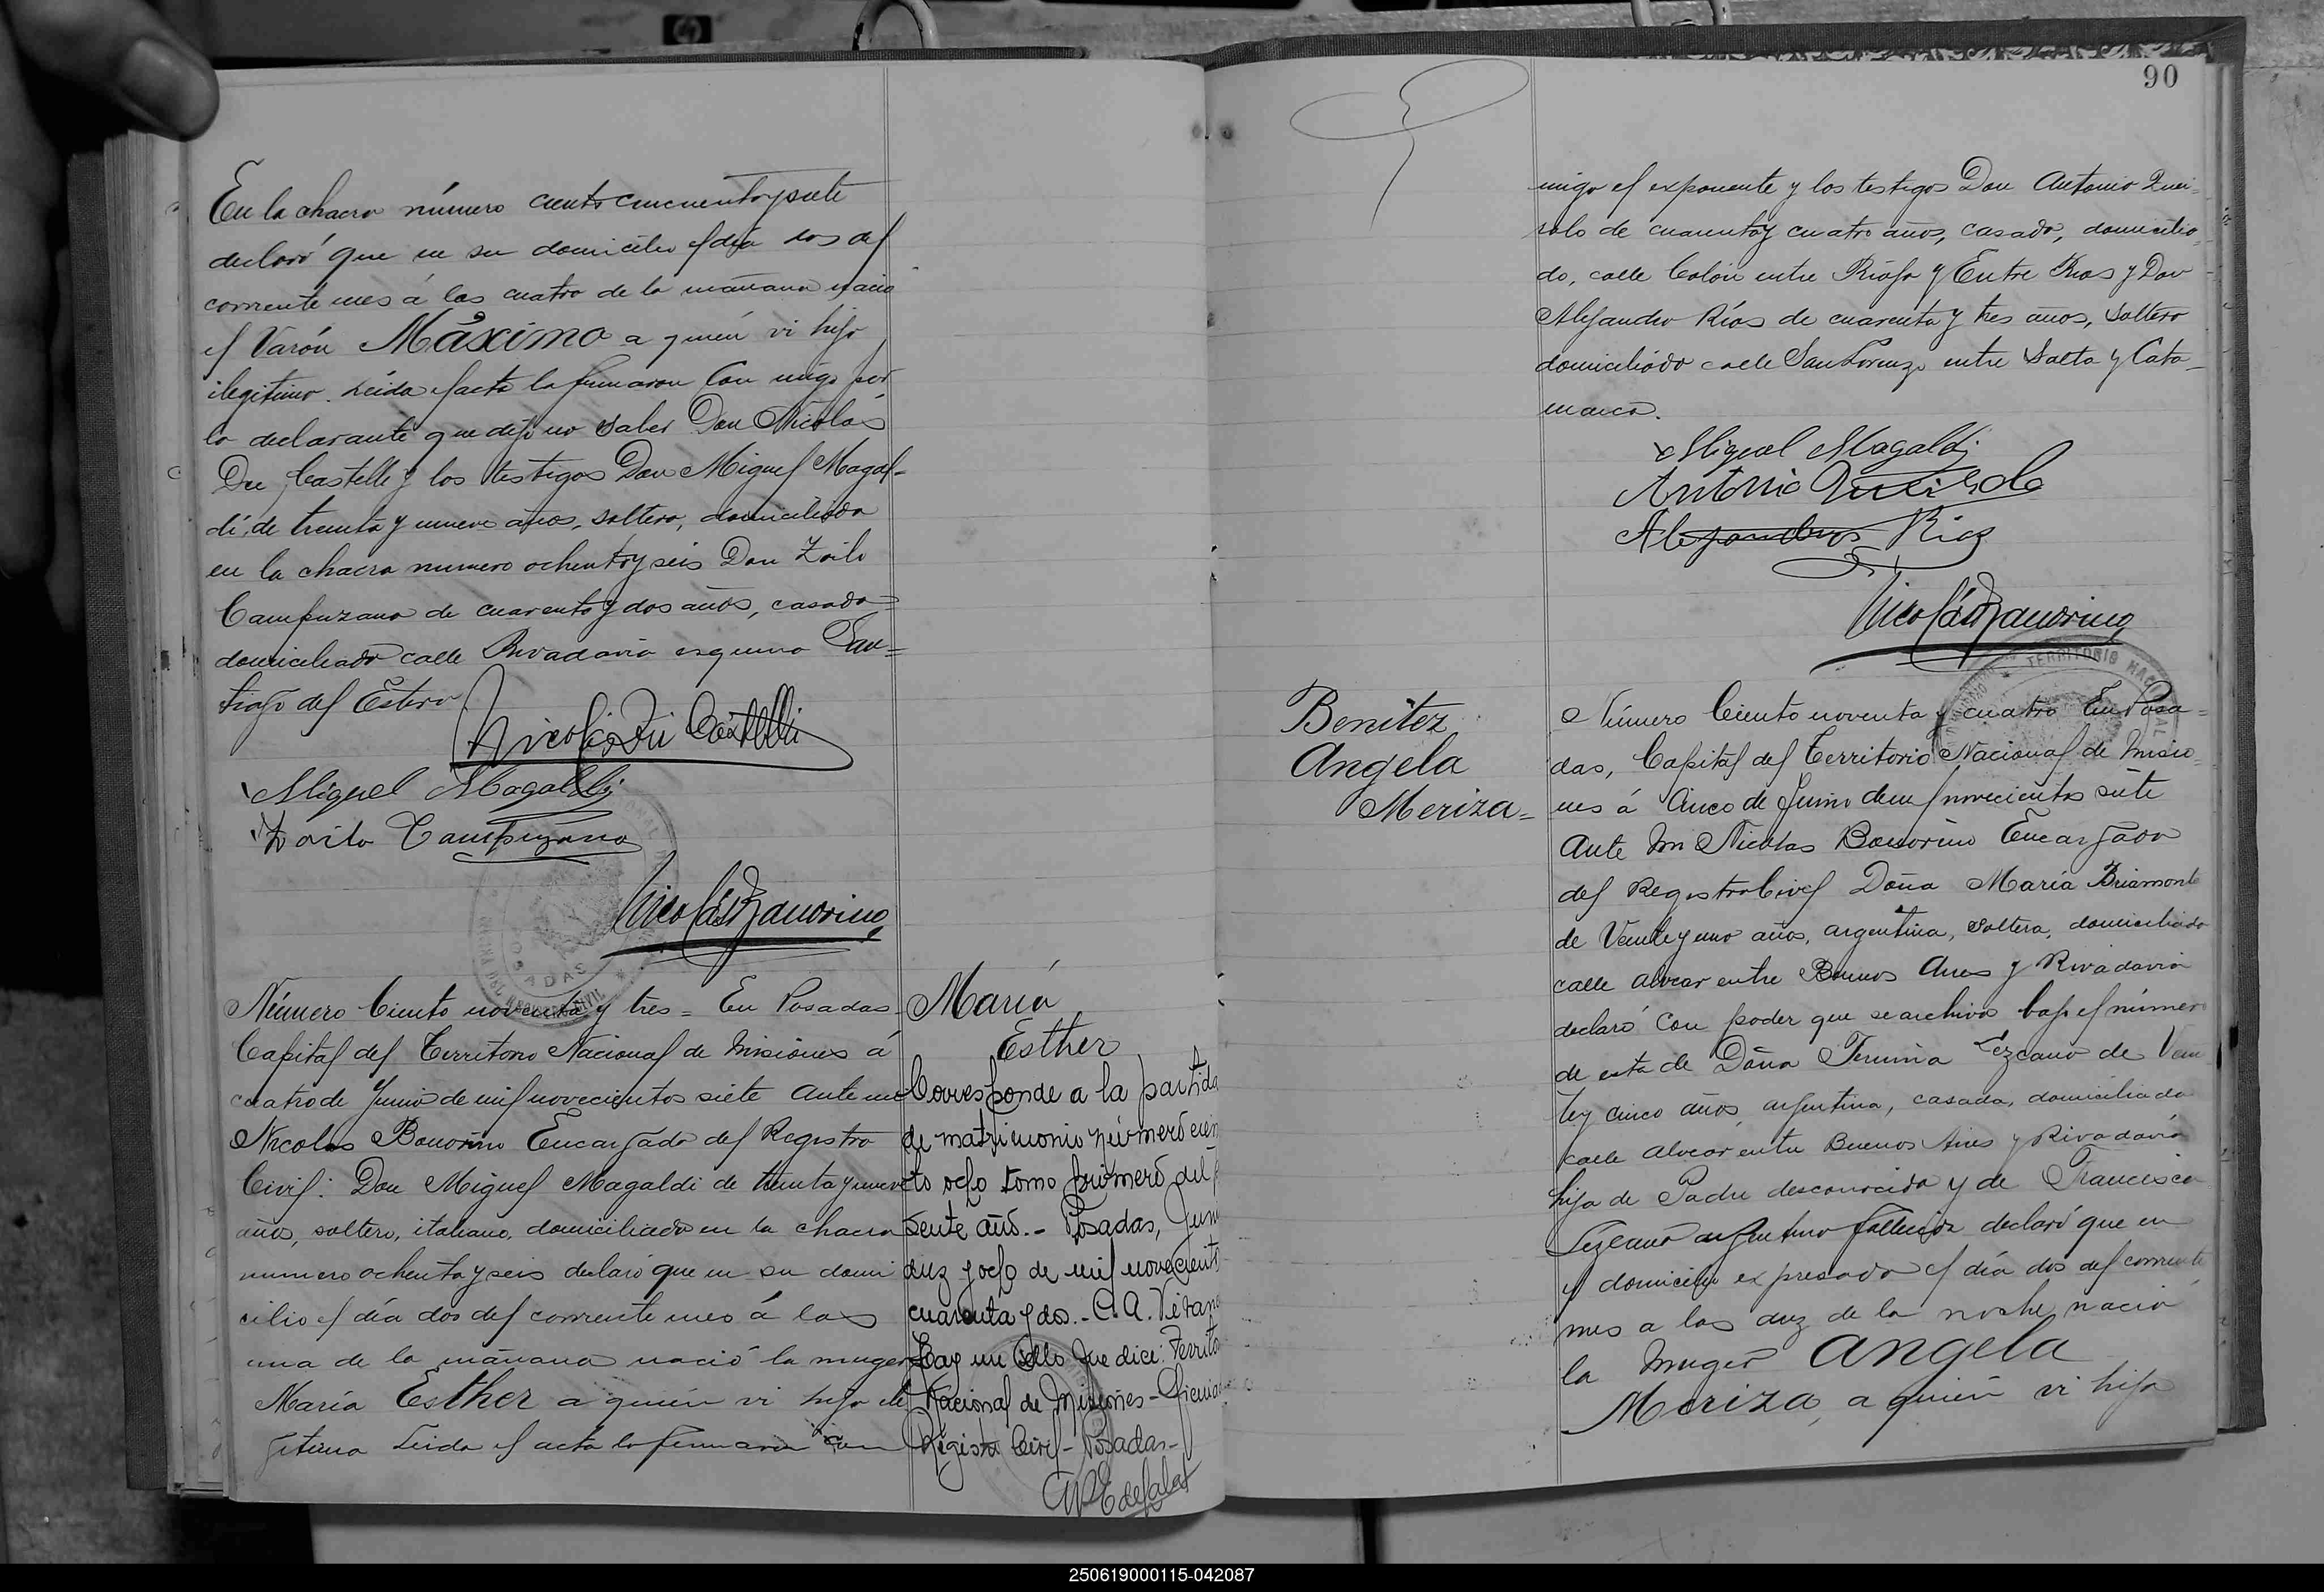 En la chacra número ciento cincuenta y siete
declaró que en su domicilio el día dos del
corriente mes á las cuatro de la mañana nació
el Varón Máximo a quien vi hijo
ilegitimo. Leida el acta la firmaron Con migo por
la declarante que dijo no saber Don Nicolás
Di Castelli y los testigos Don Miguel Magal-
di, de treinta y nueve años, soltero, domiciliado
en la chacra numero ochenta y seis Don Zoilo
Campuzano de cuarenta y dos años, casado
domiciliado calle Rivadavia esquina San=
tiago del Estero
Nicolás Di Castelli
Miguel Magaldi
Zoilo Campuzano
Nicolás Bonorino
Número Ciento noventa y tres = En Posadas
Capital del Territorio Nacional de Misiones á
cuatro de Junio de mil novecientos siete Ante mi
Nicolas Bonorino Encargado del Registro
Civil: Don Miguel Magaldi de treinta y nueve
años, soltero, italiano, domiciliado en la chacra
numero ochenta y seis declaró que en su domi
cilio el día dos del corriente mes á las
una de la mañana nació la muger
María Esther a quien vi hija ile
gitima Leida el acta la firmaron con
María
Esther
Corresponde a la partida
de matrimonio número cien
to ocho tomo primero del
sente año.- Posadas, Jun
diez y ocho de mil noveciento
cuarenta y dos.- C. A.
Hay un sello que dice: Territo
Nacional de Misiones - Oficina
Registro Civil - Posadas -
90
migo el exponente y los testigos Don Antonio
de cuarenta y cuatro años, casado, domicilia
do, calle Colón entre Rioja y Entre Rios y Don
Alejandro Ríos de cuarenta y tres años, soltero
domiciliado calle San Lorenzo entre Salta y Cata-
marca.
Miguel Magaldi
Antonio
Alejandro Rios
Nicolás Bonorino
Benitez
Angela
Meriza=
Número Ciento noventa y cuatro En Posa=
das, Capital del Territorio Nacional de Misio
nes á Cinco de Junio de mil novecientos siete
Ante mi Nicolas Bonorino Encargado
del Registro Civil Doña María
de Veinte y uno años, argentina, soltera, domiciliada
calle alvear entre Buenos Aires y Rivadavia
declaró Con poder que se archiva bajo el número
de esta de Doña Lezcano de Vein
te y cinco años, argentina, casada, domiciliada
calle alvear entre Buenos Aires y Rivadavia
hija de Padre desconocido y de Francisca
Lezcano argentina fallecida declaró que en
el domicilio expresado el día dos del corriente
mes a las diez de la noche nació
la Muger Angela
Meriza, a quien vi hija
250619000115-042087